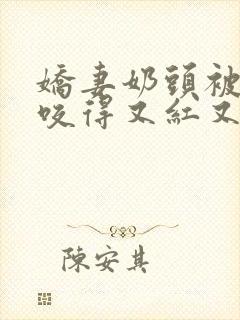 嬌妻奶頭被
咬得又紅又
陳安其